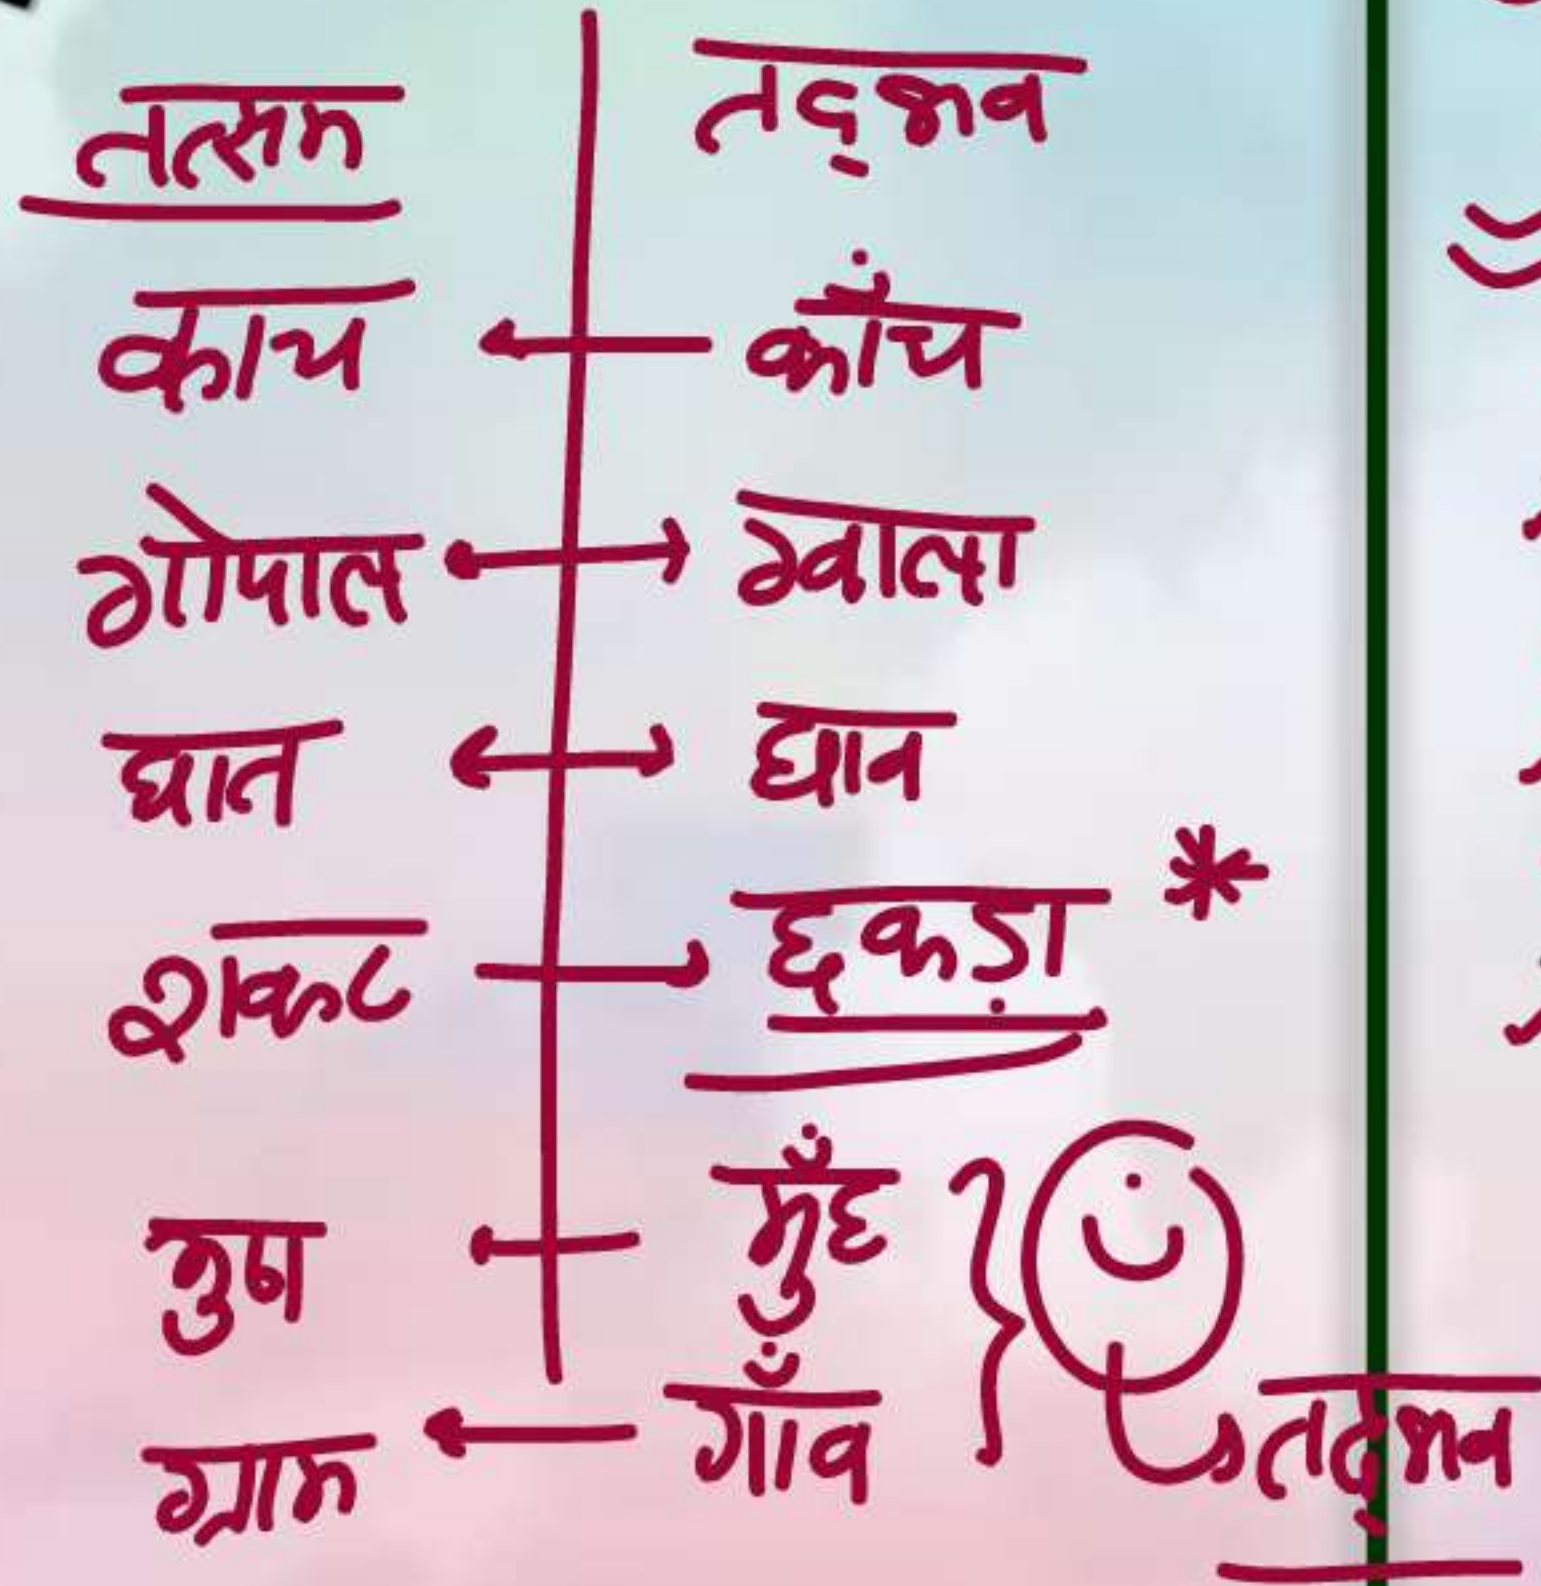 तत्सम तद्भव
काच काँच
गोपाल ग्वाला
घात घाव
शकट छकड़ा *
मुख मुँह
ग्राम गाँव
ँ तद्भव